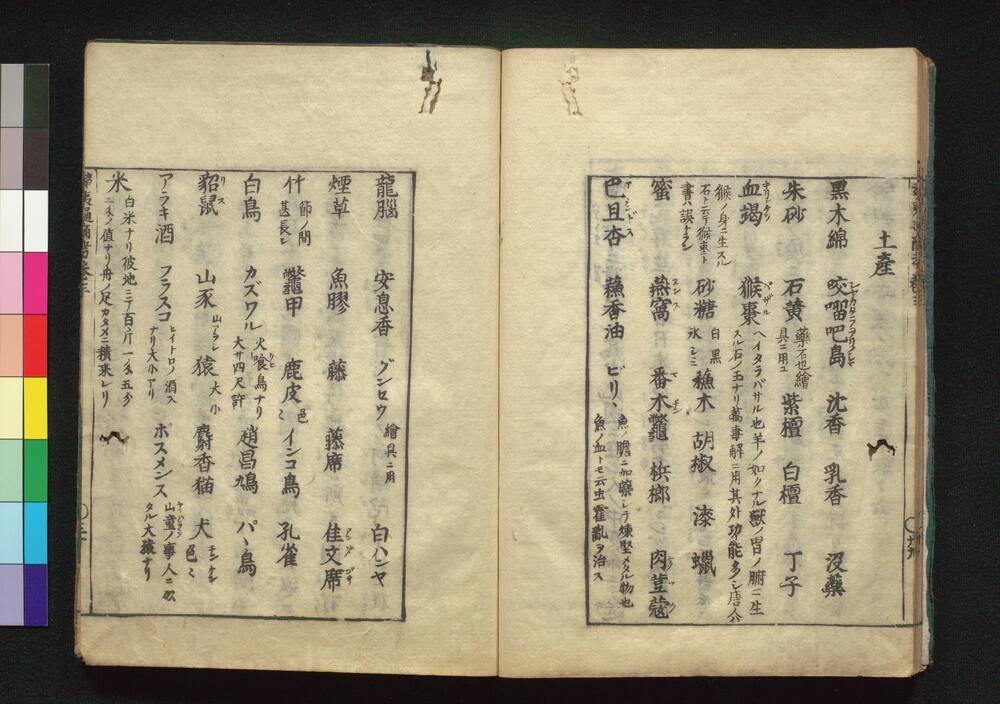 土産
黒木綿 咬𠺕吧島 沈香 乳香 没薬
朱砂 石黄 藥石也繪具ニ用ユ 紫檀 白檀 丁子
血竭 猴棗 ヘイタラバサル也羊ノ如クナル獣ノ胃ノ腑ニ生スル石ノ玉ナリ萬毒解ニ用其外功能多シ唐人
猴ノ身ニ生スル石ト云テ猴棗ト書ハ誤トランシ
砂糖 白 黒 氷 蘇木 胡椒 漆 蠟
蜜 燕窩 番木鼈 梹榔 肉荳蔻
巴旦杏 蘓香油 ビリヽ 魚ノ膽ニ加藥シテ煉堅メタル物也魚ノ血トモ云虫霍亂ヲ治ス
龍腦 安息香 グンロウ 繪具ニ用 白ハンヤ
煙草 魚膠 藤 藤席 佳文席
竹 節ノ間甚長シ 鼈甲 鹿皮 色ミ インコ鳥 孔雀
白鳥 カズワル 火喰鳥ナリ大サ四尺許 趙昌鳩 パヽ鳥
貂鼠 山豕 山アラシ 猿 大小 麝香猫 犬 色ミ
アラキ酒 フラスコ ヒイトロノ酒スナリ大小アリ ホスメンス 山童ノ事人ニ似タル大猿ナリ
米 白米ナリ彼地ニテ百斤一匁五分二匁ノ値ナリ舟ノ足カタメニ積来レリ